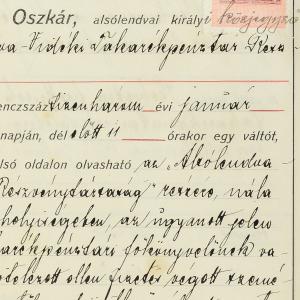 Oszkár, alsólendvai királyi közjegyző
va-Vidéki Takarékpénztár Rész
encszáz tizenhárom évi január
napján, dél előtt 11 órakor egy váltót,
lsó oldalon olvasható az „Alsólendva
Részvénytársaság" részére, nála
helyiségében, az ugyanott jelen
arékpénztári főkönyvelőnek va
ellen fizetés végett